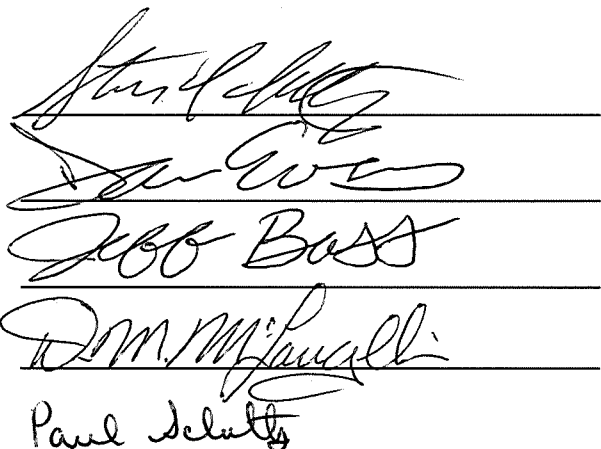 Dan Evans
Jeff Bass
D. M. McLaughlin
Paul Schultz